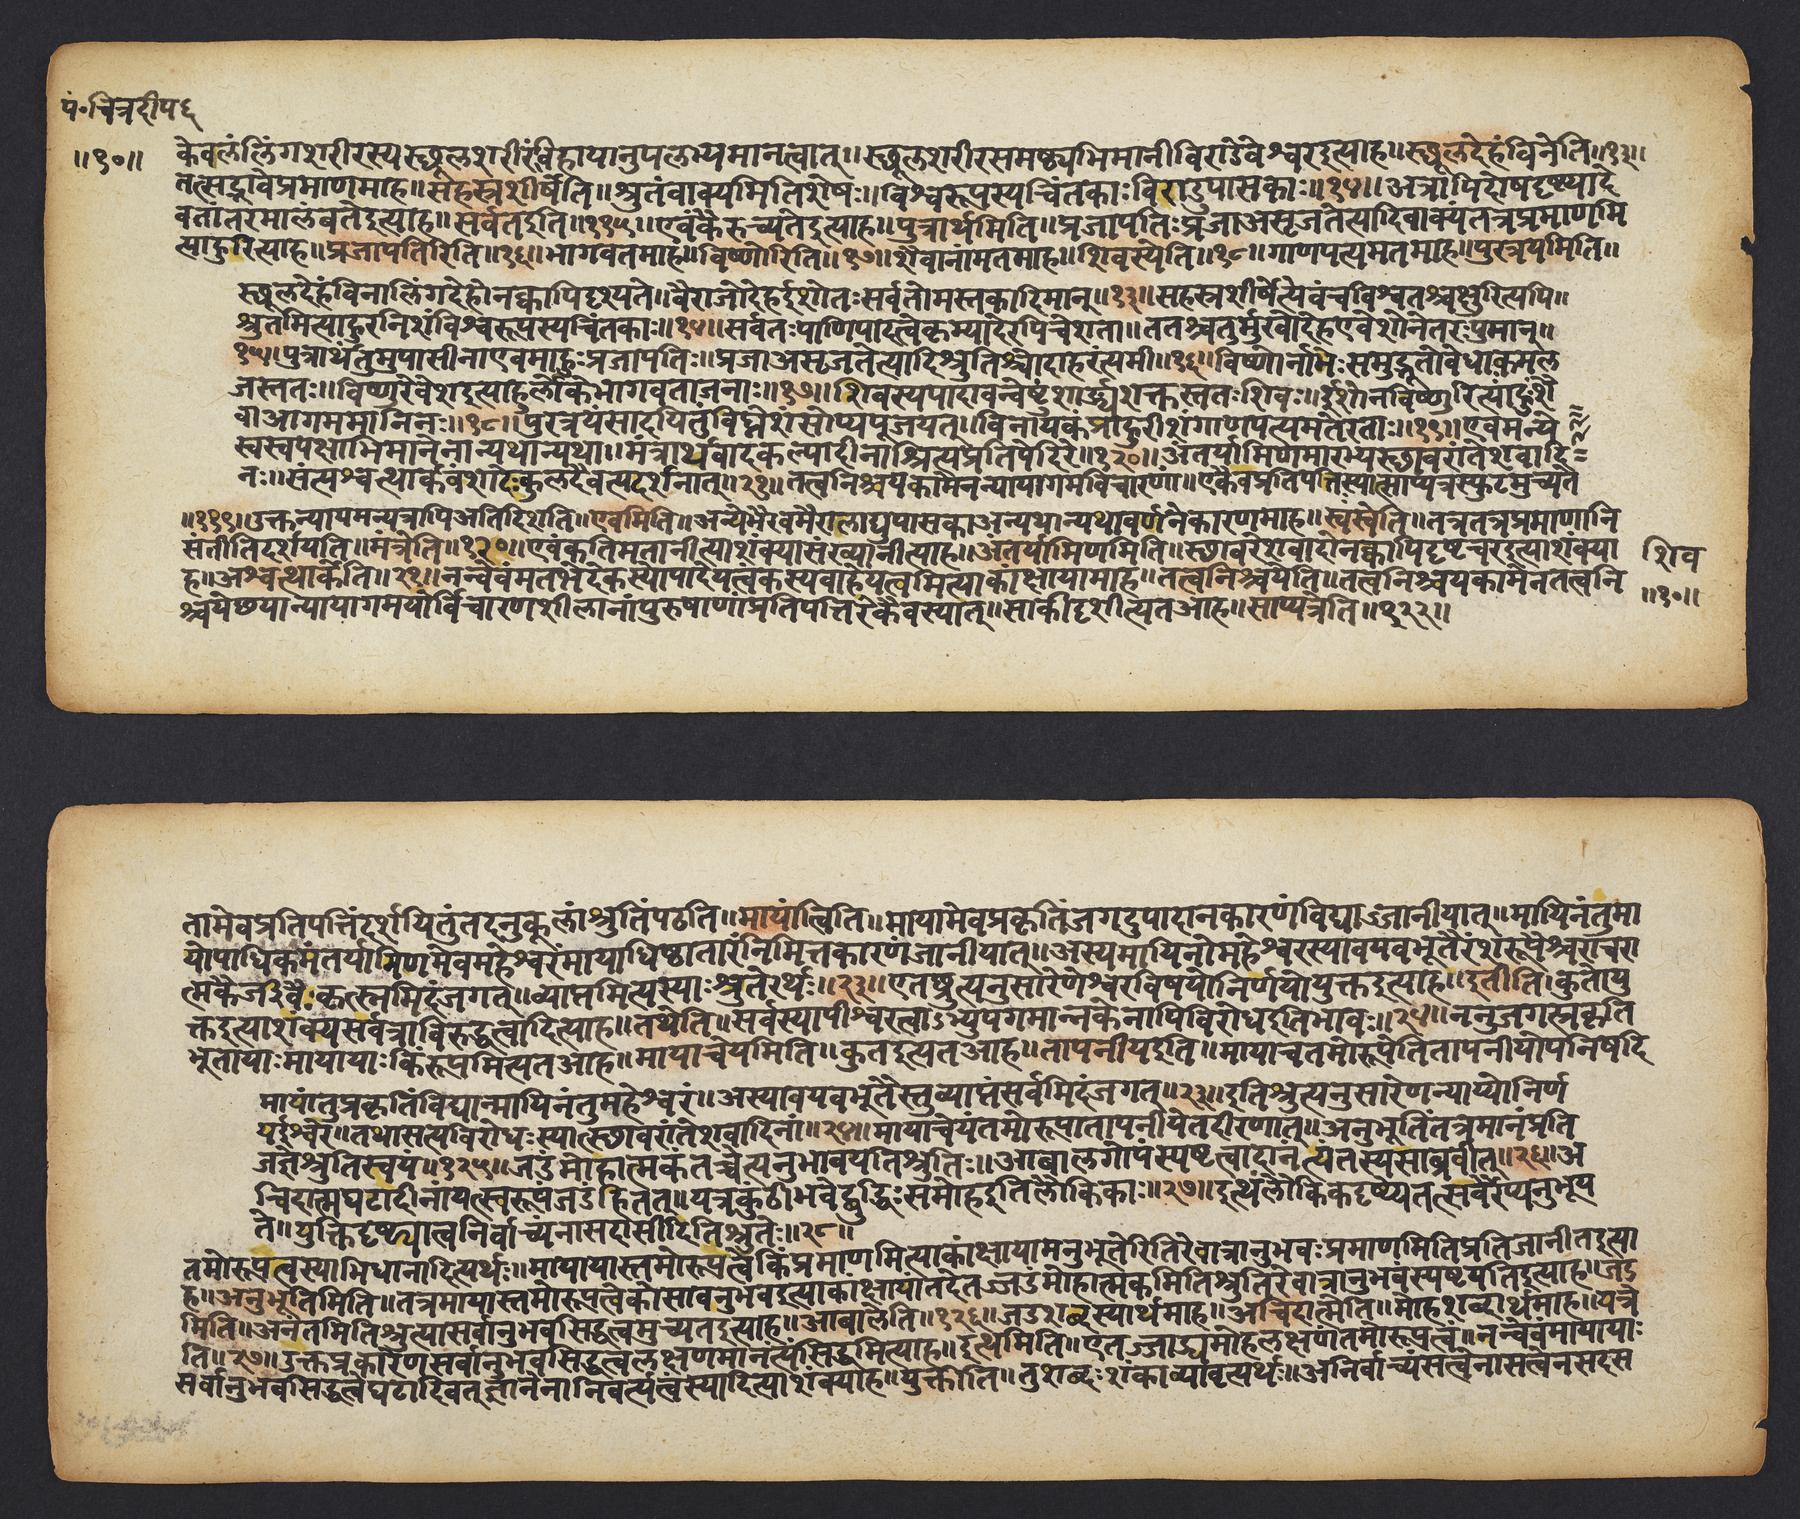 पं॰चित्रदीप६
॥१०॥
केवलंलिंगशरीरस्यस्थूलशरीरंविहायानुपलभ्यमानत्वात्॥स्थूलशरीरसमष्ट्यभिमानीविराडेवेश्वरइत्याह॥स्थूलदेहंविनेति॥१३॥
तत्सद्भावेप्रमाणमाह॥सहस्रशीर्षेति॥श्रुतंवाक्यमितिशेषः॥विश्वरूपस्यचिंतकाःविराडुपासकाः॥१४॥अत्रापिदोषदृष्ट्यादे
वतांतरमालंबतेइत्याह॥सर्वतइति॥११५॥एवंकैरुच्यतेइत्याह॥पुत्रार्थमिति॥प्रजापतिःप्रजाअसृजतेत्यादिवाक्यंतत्रप्रमाणमि
त्याहुरित्याह॥प्रजापतिरिति॥१६॥भागवतमाह॥विष्णोरिति॥१७॥शैवानांमतमाह॥शिवस्येति॥१८॥गाणपत्यमतमाह॥पुरत्रयमिति॥
स्थूलदेहंविनालिंगदेहोनक्वापिदृश्यते॥वैराजोदेहईशोतःसर्वतोमस्तकादिमान्॥१३॥सहस्रशीर्षेत्येवंचविश्वतश्चक्षुरित्यपि॥
श्रुतमित्याहुरनिशंविश्वरूपस्यचिंतकाः॥१४॥सर्वतःपाणिपादत्वेकृम्यादेरपिचेशता॥ततश्चतुर्मुखोदेहएवेशोनेतरःपुमान्॥
१५॥पुत्रार्थंतमुपासीनाएवमाहुःप्रजापतिः॥प्रजाअसृजतेत्यादिश्रुतिश्चोदाहरंत्यमी॥१६॥विष्णोर्नाभेःसमुद्भूतोवेधाःकमल
जस्ततः॥विष्णुरेवेशइत्याहुर्लोकेभागवताजनाः॥१७॥शिवस्यपादावन्वेष्टुंशार्ङ्ग्यशक्तस्ततःशिवः॥ईशोनविष्णुरित्याहुःशै
वाआगममानिनः॥१८॥पुरत्रयंसादयितुंविघ्नेशंसोप्यपूजयत्॥विनायकंप्राहुरीशंगाणपत्यमतेरताः॥१९॥एवमन्ये
स्वस्वपक्षाभिमानेनान्यथान्यथा॥मंत्रार्थवादकल्पादीनाश्रित्यप्रतिपेदिरे॥१२०॥अंतर्यामिणमारभ्यस्थावरांतेशवादि
नः॥संत्यश्वत्थार्कवंशादेःकुलदैवत्यदर्शनात्॥२१॥तत्त्वनिश्चयकामेनन्यायागमविचारणां॥एकैवप्रतिपत्तिःस्यात्साप्यत्रस्फुटमुच्यते
॥११९॥उक्तन्यायमन्यत्रापिअतिदिशति॥एवमिति॥अन्येभैरवमैरालाद्युपासकाअन्यथान्यथावर्णनेकारणमाह॥स्वस्वेति॥तत्रतत्रप्रमाणानि
संतीतिदर्शयति॥मंत्रेति॥१२०॥एवंकतिमतानीत्याशंक्यासंख्यानीत्याह॥अंतर्यामिणमिति॥स्थावरेशवादोनक्वापिदृष्टचरइत्याशंक्या
ह॥अश्वत्थार्केति॥२१॥नन्वेवंमतभेदेकस्योपादेयत्वंकस्यवाहेयत्वमित्याकांक्षायामाह॥तत्त्वनिश्चयेति॥तत्त्वनिश्चयकामेनतत्त्वनि
श्चयेच्छयान्यायागमयोर्विचारणशीलानांपुरुषाणांप्रतिपत्तिरेकैवस्यात्॥साकीदृशीत्यतआह॥साप्यत्रेति॥१२२॥
शिव
॥१०॥
तामेवप्रतिपत्तिंदर्शयितुंतदनुकूलांश्रुतिंपठति॥मायांत्विति॥मायामेवप्रकृतिंजगदुपादानकारणंविद्याज्जानीयात्॥मायिनंतुमा
योपाधिकमंतर्यामिणमेवमहेश्वरंमायाधिष्ठातारंनिमित्तकारणंजानीयात्॥अस्यमायिनोमहेश्वरस्यावयवभूतैरंशरूपैश्चराचरा
त्मकैर्जीवैःकृत्स्नमिदंजगत्॥व्याप्तमित्यस्याःश्रुतेरर्थः॥२३॥एतच्छ्रुत्यनुसारेणेश्वरविषयोनिर्णयोयुक्तइत्याह॥इतीति।कुतोयु
क्तइत्याशंक्यसर्वत्राविरुद्धत्वादित्याह॥तथेति॥सर्वस्यापीश्वरत्वाऽभ्युपगमान्नकेनापिविरोधइतिभावः॥२४॥ननुजगत्प्रकृति
भूतायाःमायायाःकिंरूपमित्यतआह॥मायाचेयमिति॥कुतइत्यतआह॥तापनीयइति॥मायाचतमोरूपेतितापनीयोपनिषदि
मायांतुप्रकृतिंविद्यान्मायिनंतुमहेश्वरं॥अस्यावयवभूतैस्तुव्याप्तंसर्वमिदंजगत्॥२३॥इतिश्रुत्यनुसारेणन्याय्योनिर्ण
यईश्वरे॥तथासत्यविरोधःस्यात्स्थावरांतेशवादिनां॥२४॥मायाचेयंतमोरूपातापनीयेतदीरणात्॥अनुभूतिंतत्रमानंप्रति
जज्ञेश्रुतिःस्वयं॥१२५॥जडंमोहात्मकंतच्चेत्यनुभावयतिश्रुतिः॥आबालगोपंस्पष्टत्वादानंत्यंतस्यसाब्रवीत्॥२६॥अ
चिदात्मघटादीनांयत्स्वरूपंजडंहितत्॥यत्रकुंठीभवेद्बुद्धिःसमोहइतिलौकिकाः॥२७॥इत्थंलौकिकदृष्ट्यैतत्सर्वैरप्यनुभूय
ते॥युक्तिदृष्ट्यात्वनिर्वाच्यंनासदासीदितिश्रुतेः॥२८॥
तमोरूपत्वस्याभिधानादित्यर्थः॥मायायास्तमोरूपत्वेकिंप्रमाणमित्याकांक्षायामनुभूतेरितिरेवात्रानुभवःप्रमाणमितिप्रतिजानीतइत्या
ह॥अनुभूतिमिति॥तत्रमायास्तमोरूपत्वेकोसावनुभवइत्याकांक्षायांतदेतज्जडंमोहात्मकमितिश्रुतिरेवात्रानुभवंस्पष्टयतिइत्याह॥जड
मिति॥अनंतमितिश्रुत्यासर्वानुभवसिद्धत्वमुच्यतइत्याह॥आबालेति॥१२६॥जडशब्दस्यार्थमाह॥अचिदात्मेति॥मोहशब्दार्थमाह॥यत्रे
ति॥२७॥उक्तप्रकारेणसर्वानुभवसिद्धत्वलक्षणमानंत्यंसिद्धमित्याह॥इत्थमिति॥एतज्जाड्यमोहलक्षणंतमोरूपत्वं॥नन्वेवंमायायाः
सर्वानुभवसिद्धत्वेघटादिवत्ज्ञानेनानिवर्त्यत्वंस्यादित्याशंक्याह॥युक्तीति॥तुशब्दःशंकाव्यावृत्यर्थः॥अनिर्वाच्यंसत्त्वेनासत्त्वेनसदस